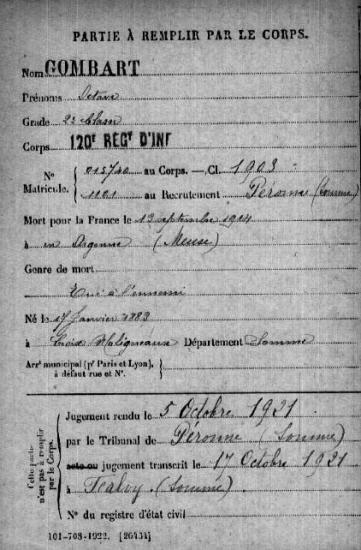 PARTIE À REMPLIR PAR LE CORPS.
Nom GOMBART
Prénoms Octave
Grade 2e classe
Corps 120e REGT D'INF
N° 015740 au Corps. — Cl. 1903
Matricule. 1101 au Recrutement Péronne (Somme)
Mort pour la France le 13 septembre 1914
à en Argonne (Meuse)
Genre de mort
Tué à l'ennemi
Né le 17 Janvier 1883
à Croix Moligneaux Département Somme
Arrt municipal (pr Paris et Lyon), à défaut rue et N°.
cette partie n'est pas à remplir par le Corps.
Jugement rendu le 5 Octobre 1921
par le Tribunal de Péronne (Somme)
acte ou jugement transcrit le 17 Octobre 1921
à Falvy (Somme)
N° du registre d'état civil
101-708-1922. [26434]